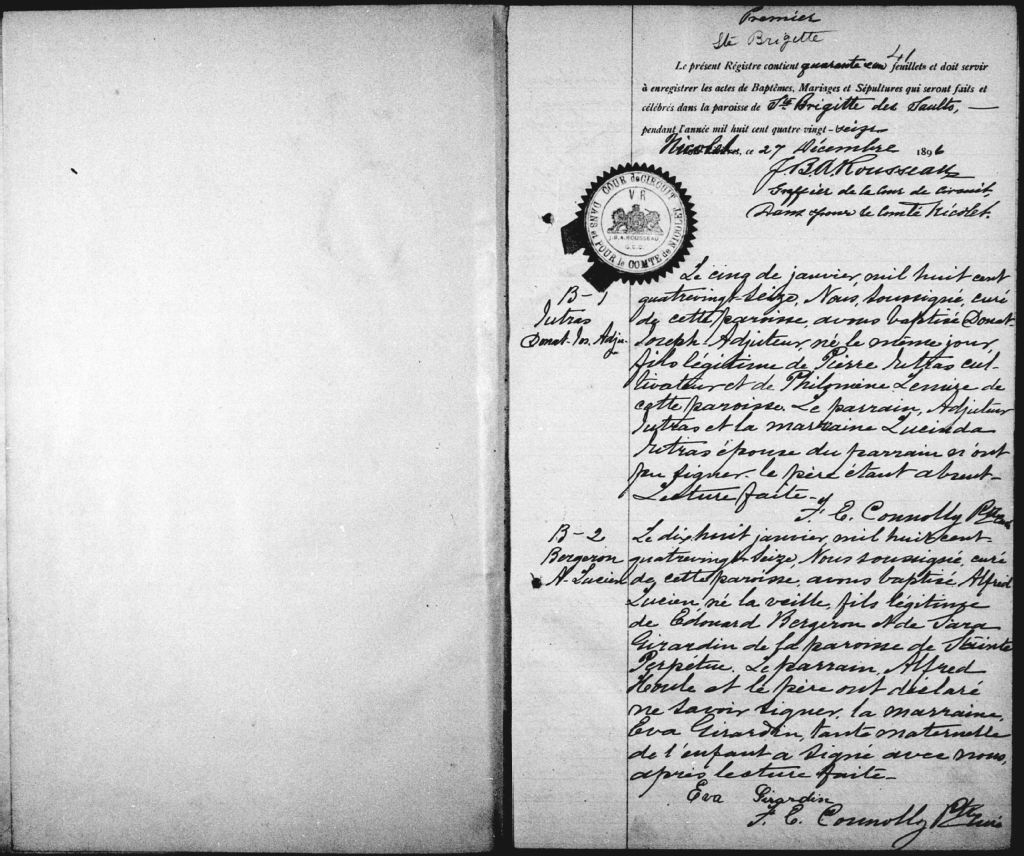 Premier
Ste Brigitte
Le présent Régistre contient quarante un 41 feuillets et doit servir
à enregistrer les actes de Baptêmes, Mariages et Sépultures qui seront faits et
célébrés dans la paroisse de Ste Brigitte des Saults,
pendant l'année mil huit cent quatre vingt-seize
Nicolet, ce 27 Décembre 1896
J.B.A. Rousseau
Greffier de la Cour de Circuit,
Dans & pour le Comté Nicolet.
COUR de CIRCUIT
DANS et POUR le COMTÉ de NICOLET
V R
J.B.A. ROUSSEAU
G.C.C.
B-1
Jutras
Donat-Jos. Adju-
Le cinq de janvier, mil huit cent
quatrevingt-seize, Nous, soussigné, curé
de cette paroisse, avons baptisé Donat-
Joseph-Adjuteur, né le même jour,
fils légitime de Pierre Jutras cul-
tivateur et de Philomène Lemire de
cette paroisse. Le parrain, Adjuteur
Jutras et la marraine Lucinda
Jutras épouse du parrain n'ont
pu signer. le père étant absent-
Lecture faite-
F. E. Connolly Ptre
B-2
Bergeron
A-Lucien
Le dix huit janvier, mil huit cent-
quatrevingt-seize, Nous soussigné, curé
de cette paroisse, avons baptisé Alfred
Lucien né la veille, fils légitime
de Edouard Bergeron et de Sara
Girardin de la paroisse de Sainte
Perpétue. Le parrain, Alfred
Houle et le père ont déclaré
ne savoir signer, la marraine,
Eva Girardin, tante maternelle
de l'enfant a signé avec nous,
après lecture faite-
Eva Girardin
F. E. Connolly Ptre Curé